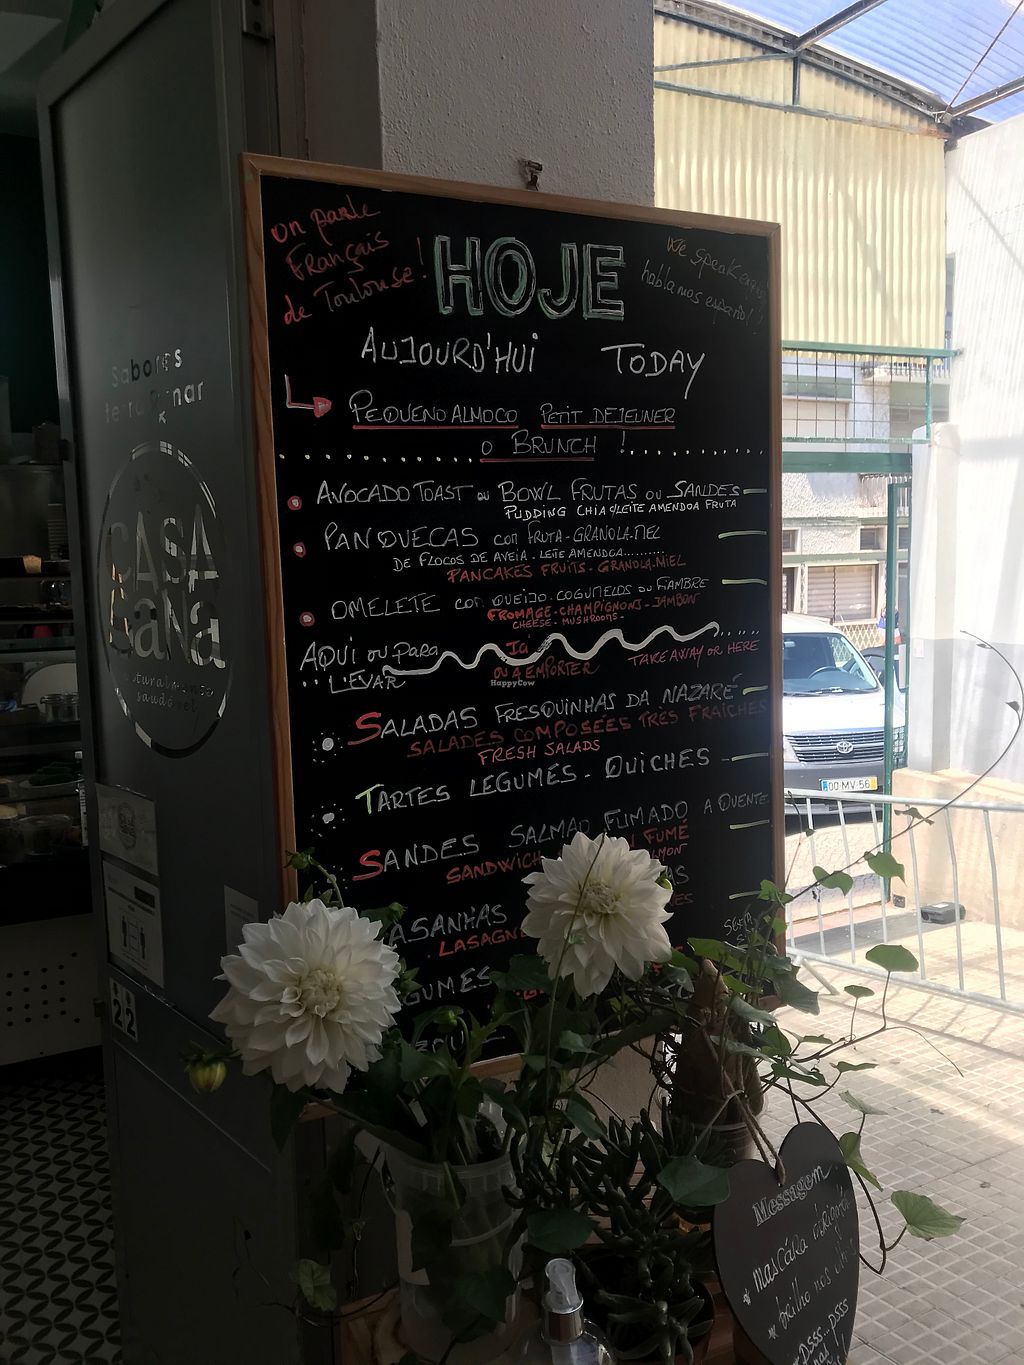 on parle
Français
de Toulouse !
HOJE
We speak
hablamos español !
AUJOURD'HUI TODAY
PEQUENO ALMOCO PETIT DEJEUNER
O BRUNCH !
AVOCADO TOAST ou BOWL FRUTAS ou SANDES
PUDDING CHIA LEITE AMENDOA FRUTA
PANQUECAS com FRUTA - GRANOLA - MEL
DE FLOCOS DE AVEIA - LEITE AMENDOA..........
PANCAKES FRUITS - GRANOLA - MIEL
OMELETE com QUEIJO - COGUMELOS ou FIAMBRE
FROMAGE - CHAMPIGNONS - JAMBON
CHEESE - MUSHROOMS -
AQUI ou para
LEVAR
OU A EMPORTER
TAKE AWAY OR HERE
HappyCow
SALADAS FRESQUINHAS DA NAZARÉ
SALADES COMPOSÉES TRES FRAÎCHES
FRESH SALADS
TARTES LEGUMES - QUICHES
SANDES SALMAO FUMADO A QUENTE
SANDWICH FUMÉ
ASANHAS
LASAGN
GUMES
Sabores
terra mar
CASA
naturalmente
saudável
22
00-MV-56
Messagem
mascára
psss - psss